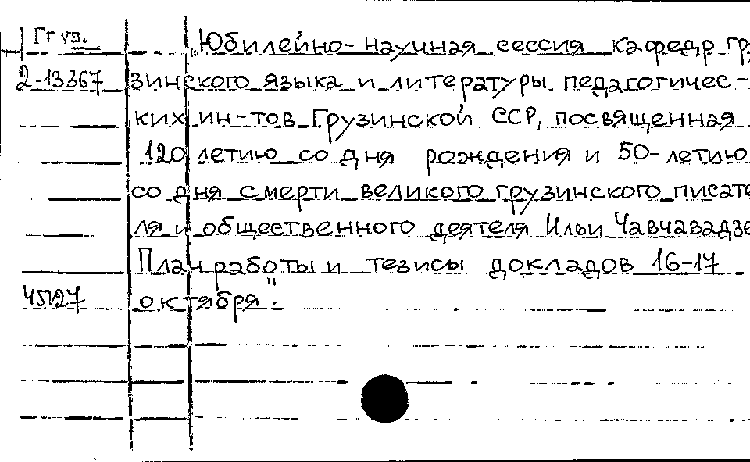 Гг уз. Юбилейно-научная сессия кафедр гру
2-13367 зинского языка и литературы педагогичес-
ких ин-тов Грузинской ССР, посвященная
120 летию со дня рождения и 50-летию
со дня смерти великого грузинского писате
ля и общественного деятеля Ильи Чавчавадзе
План работы и тезисы докладов 16-17
45127 октября".